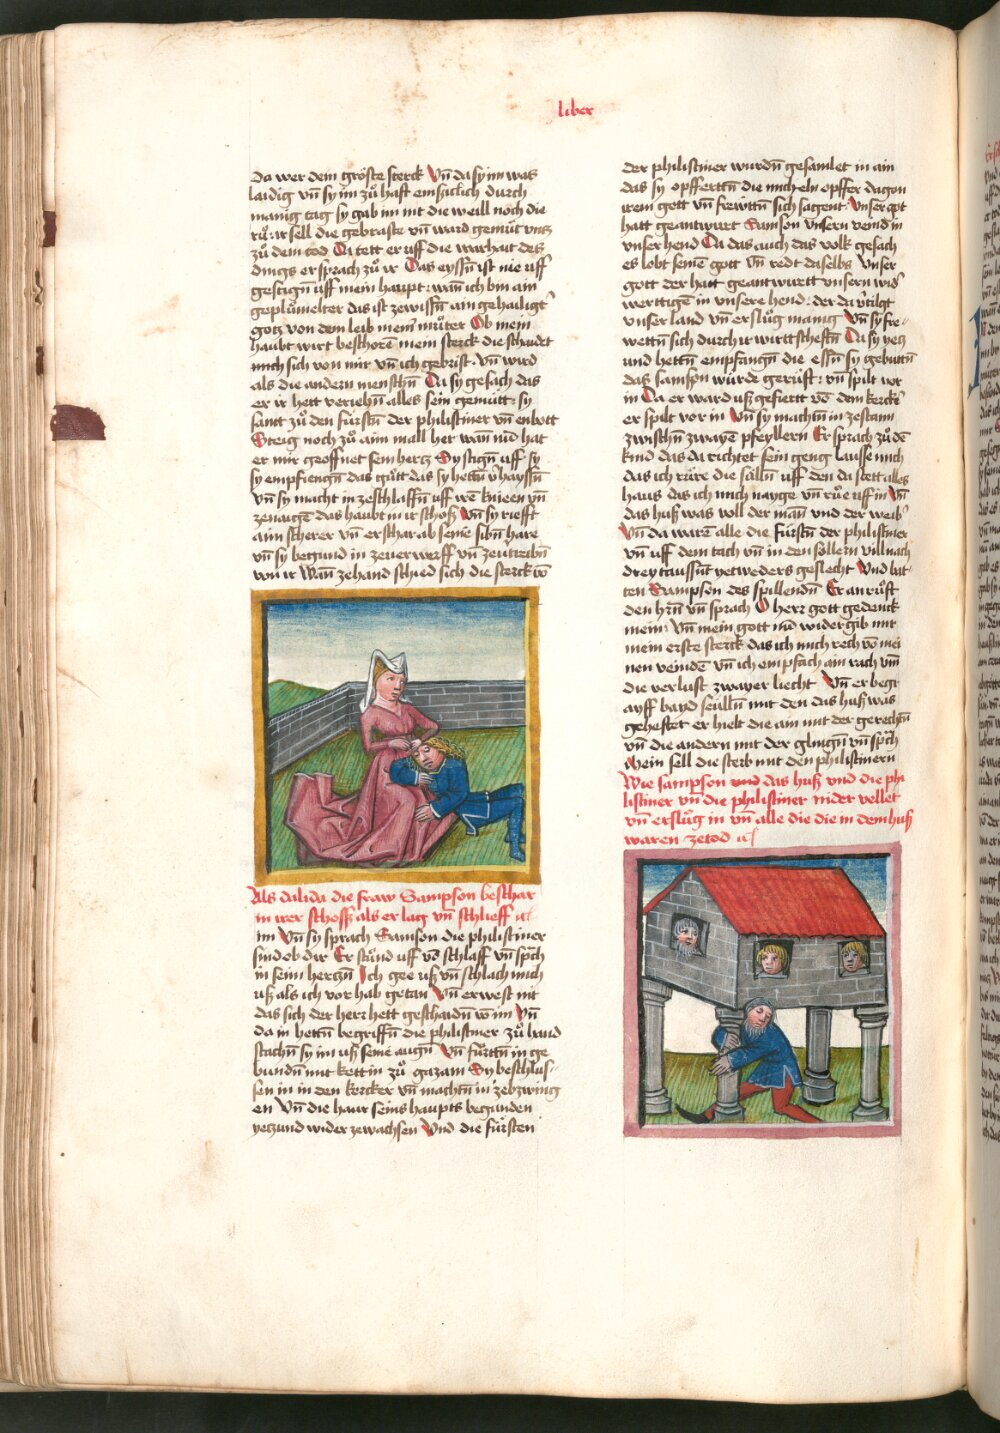 liber
da wer dem gröste sterck Vn̄ da sy im was
laidig vn̄ sy im zů hafft emsiclich durch
manig tag sy gab im nit die weill noch die
rů ir sell die gebraste vn̄ ward gemüt vncz
zů dem tod Da tett er uff die warhait des
dings er sprach zů ir Das eyssn̄ ist nie uff
gestign̄ uff mein haupt: wan̄ ich bin ain
geplůmelter das ist zewissn̄ ain gehailigt̓
gotz von dem leib meinr̄ můter Ob mein
haubt wirt beschorē mein sterck die schaidet
mich sich von mir vn̄ ich gebrist vn̄ wird
als die andern menschn̄ Da sy gesach das
er ir hett veriehn̄ alles sein gemütt: sy
sant zů den fürstn̄ der philistiner vn̄ enbott
Steig noch zů aim mall her wan̄ nū hat
er mir geoffnet sein hertz Sy stign̄ uff sy
sy empfiengn̄ das gůtt das sy hettn̄ v̓hayssn̄
vn̄ sy macht in zeschlaffn̄ uff irē knieen vn̄
zenaigē das haubt in ir schoß Vn̄ sy riefft
aim scherer vn̄ er schar ab seine sibn̄ hare
vn̄ sy begund in zeuerwerff vn̄ zeu̓tribn̄
von ir Wan̄ zehand schied sich die sterck vō
Als dalida die fraw Sampson beschar
in irer schoss als er lag vn̄ schlieff ꝛc
im Vn̄ sy sprach Samson die philistiner
sind ob dir Er stůnd uff vō schlaff vn̄ sp̄ch
in seim hertzn̄ Ich gee uß vn̄ schlach mich
uß als ich vor hab getan Vn̄ er west nit
das sich der herr hett geschaidn̄ vō im Vn̄
da in hettn̄ begriffn̄ die philistiner zů hand
stachn̄ sy im uß seine augn̄ Vn̄ fürttn̄ in ge
bundn̄ mit kettin zů gazam Sy beschlus-
sen in in den kercker vn̄ machtn̄ in zebzwing
en Vn̄ die haur seins haupts begunden
yetzund wider zewachsen Vnd die fürsten
der philistiner wurdn̄ gesamlet in ain
das sy opffertn̄ die micheln opffer dagon
irem gott vn̄ frewttn̄ sich sagent: Vnser got
hatt geantwurt Samson vnsern veind in
vnser hend Da das auch das volk gesach
es lobt seinē gott Vn̄ redt daselbs Vnser
gott der hatt geantwurtt vnsern wid̓
werttigē in vnsere hend: der da v̓tilgt
vnser land vn̄ erslůg manig Vn̄ sy fre-
wettn̄ sich durch ir wirttschefftn̄ Da sy yetz
vnd hettn̄ empfangn̄ die essn̄ sy gebuttn̄
das samson würde gerüfft: vn̄ spilt vor
in Da er ward uß gefiertt vō dem kercke̓
er spilt vor in Vn̄ sy machtn̄ in zestann
zwischn̄ zwayē pfeyllern Er sprach zů dē
kind das da richtet sein geng Lausse mich
das ich rüre die sülln̄ uff den da stett alles
haus das ich mich nayge vn̄ růe uff in Vn̄
das huß was voll der man̄ vnd der weib̓
Vn̄ da warē alle die fürstn̄ der philistiner
vn̄ uff dem tach vn̄ in den söllern vill nach
drey taussnt̄ yetweders geslecht Vnd bat-
ten Sampson des spillendn̄ Er anrůfft
den hrn̄ vn̄ sprach O herr gott gedenck
mein: Vn̄ mein gott nū widergib mir
mein erste sterck das ich mich rech vō mei
nen veindē vn̄ ich empfach ain rach vm̄
die verlust zwayer liecht Vn̄ er begr
ayff bayd seüln̄ mit den das huß was
geheftet er hielt die ain mit der gerechtn̄
vn̄ die andern mit der glingn̄ vn̄ sp̄ch
Mein sell die sterb mit den philistinern
Wie sampson vnd das huß vnd die phi
listiner vn̄ die philistiner nider vellet
vn̄ erslůg in vn̄ alle die die in dem huß
waren zetod ꝛc